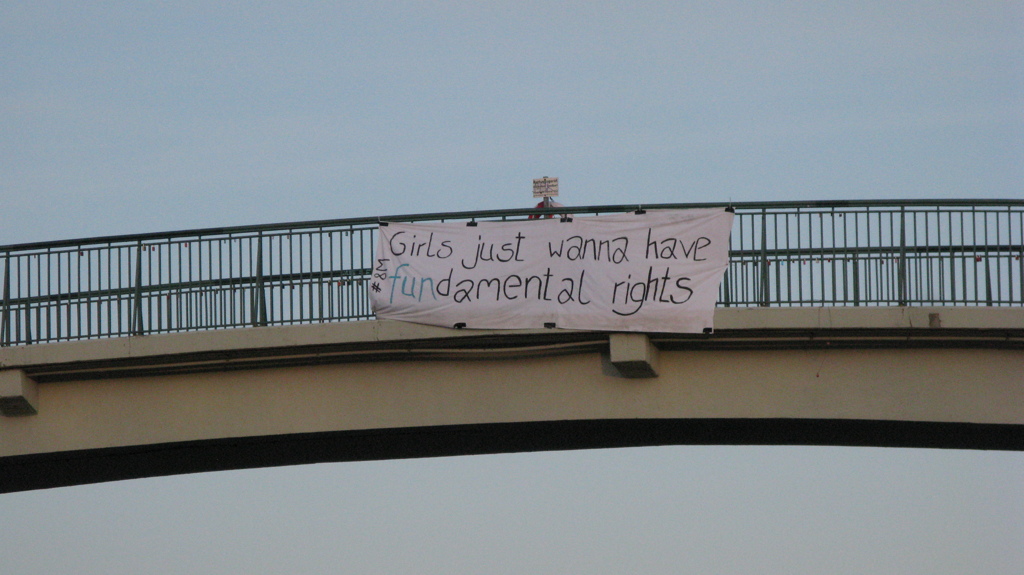 Girls just wanna have
fundamental rights
#8M